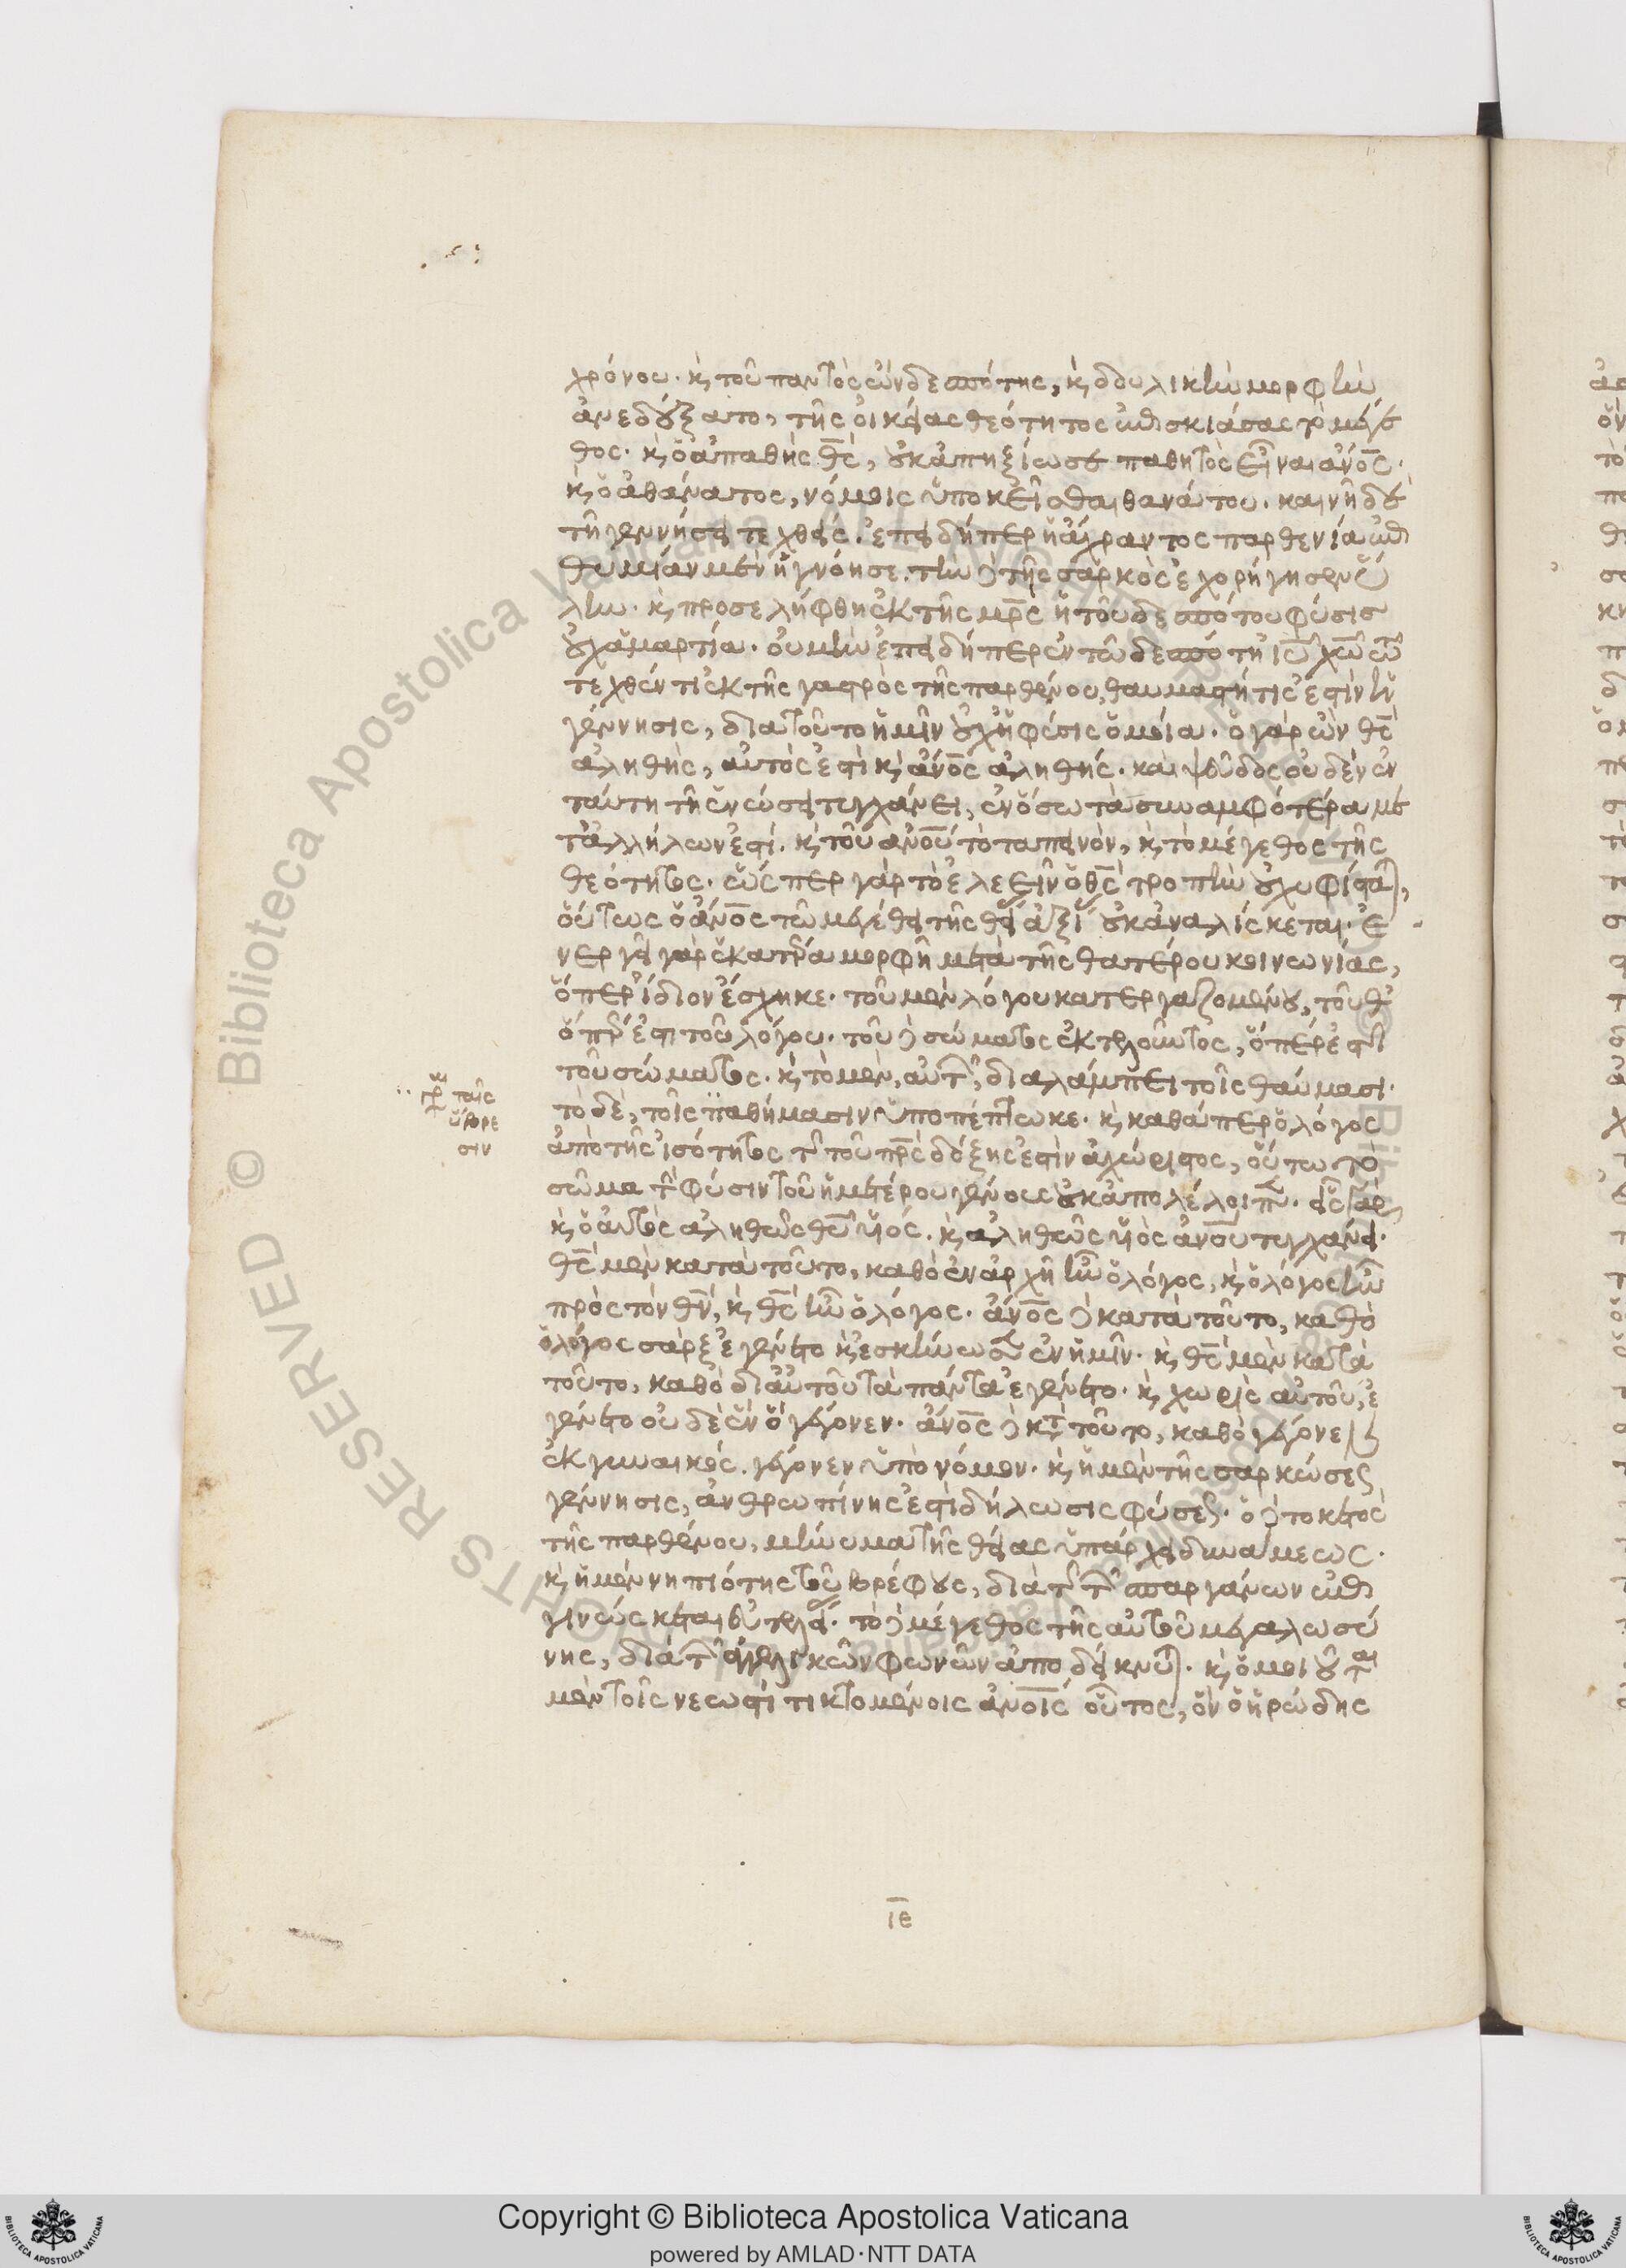 χρόνου· κ̀ τοῦ παντὸς ὢν δεσπότης, κ̀ δουλικὴν μορφὴν
ἀνεδέξατο, τῆς οἰκείας θεότητος ἐπισκιάσας τὸ μέγε
θος· κ̀ ὁ ἀπαθὴς θς̅, οὐκ ἀπηξίωσε παθητὸς εἶναι ἄνος̅·
κ̀ ὁ ἀθάνατος, νόμοις ὑποκεῖσθαι θανάτου. καινῇ δὲ
τῇ γεννήσει τεχθείς. ἐπειδήπερ ἡ ἄχραντος παρθενία ἐπι
θυμίαν μὲν ἠγνόησε. τὴν δὲ τῆς σαρκὸς ἐχορήγησεν ὕ
λην. κ̀ προσελήφθη ἐκ τῆς μρ̅ς ἡ τοῦ δεσπότου φύσις
οὐχ ἁμαρτία. οὐ μὴν ἐπειδήπερ ἐν τῷ δεσπότῃ ιυ̅ χω̅ τῷ
τεχθέντι ἐκ τῆς γαστρὸς τῆς παρθένου, θαυμαστή τις ἐστὶν ἡ
γέννησις, διατοῦτο ἡμῖν οὐχ ἡ φύσις ὁμοία. ὁ γὰρ ὢν θς̅
ἀληθής, αὐτός ἐστι κ̀ ἄνος̅ ἀληθής. καὶ ψεῦδος οὐδὲν ἐν
ταύτῃ τῇ ἑνώσει τυγχάνει, ἐν ὅσω τὰ συναμφότερα με
τ' ἀλλήλων ἐστί. κ̀ τοῦ ανου̅ τὸ ταπεινὸν, κ̀ τὸ μέγεθος τῆς
θεότητος. ὥσπερ γὰρ τὸ ἐλεεῖν ὁ θς̅ τροπὴν οὐχ υφίσταται,
οὕτως ὁ ἄνος̅ τῶ μεγέθει τῆς θείας ἀξίας οὐκ ἀναλίσκεται. ἐ
νεργεῖ γὰρ ἑκατέρα μορφὴ μετὰ τῆς θατέρου κοινωνίας,
ὅπερ ἴδιον ἔσχηκε. τοῦ μὲν λόγου κατεργαζομένου, τοῦθ'
ὅπερ ἐστὶ τοῦ λόγου. τοῦ δὲ σώματος ἐκτελοῦντος, ὅπερ ἐστὶ
τοῦ σώματος. κ̀ τὸ μὲν, αὐτῶν, διαλάμπει τοῖς θαύμασι.
τὸ δὲ, τοῖς παθήμασιν ὑποπέπτωκε. κ̀ καθάπερ ὁ λόγος
γρ ταῖς
ὕβρε
σιν
ἀπὸ τῆς ἰσότητος τῆς τοῦ πρ̅ς δόξης ἐστὶν ἀχώριστος, οὕτω τὸ
σῶμα τὴν φύσιν τοῦ ἡμετέρου γένους οὐκ ἀπολέλοιπεν. εἷς γάρ
κ̀ ὁ αὐτὸς ἀληθῶς θυ̅ υἱός. κ̀ ἀληθῶς υἱὸς ἀνου̅ τυγχάνει.
θς̅ μὲν κατὰ τοῦτο, καθὸ ἐν ἀρχῇ ἦν ὁ λόγος, κ̀ ὁ λόγος ἦν
πρὸς τὸν θν̅, κ̀ θς̅ ἦν ὁ λόγος. ἄνος̅ δὲ κατὰ τοῦτο, καθὸ
ὁ λόγος σὰρξ ἐγένετο κ̀ ἐσκήνωσεν ἐν ἡμῖν. κ̀ θς̅ μὲν κατὰ
τοῦτο, καθὸ δι' αὐτοῦ τὰ πάντα ἐγένετο. κ̀ χωρὶς αὐτοῦ, ἐ
γένετο οὐδὲ ἓν ὃ γέγονεν. ἄνος̅ δὲ κατὰ τοῦτο, καθὸ γέγονεν
ἐκ γυναικός. γέγονεν ὑπὸ νόμον. κ̀ ἡ μὲν τῆς σαρκώσεως
γέννησις, ἀνθρωπίνης ἐστὶ δήλωσις φύσεως. ὁ δὲ τοκετὸς
τῆς παρθένου, μήνυμα τῆς θείας ὑπάρχει δυνάμεως.
κ̀ ἡ μὲν νηπιότης τοῦ βρέφους, διὰ τῆς τῶν σπαργάνων ἐπι
γινώσκεται εὐτελείας. τὸ δὲ μέγεθος τῆς αὐτοῦ μεγαλωσύ
νης, διὰ τῶν ἀγγελικῶν φωνῶν ἀποδείκνυται. κ̀ ὁμοιοῦται
μὲν τοῖς νεωστὶ τικτομένοις ἀνοις̅ οὗτος, ὃν ὁ ἡρώδης
ιε̅
Copyright © Biblioteca Apostolica Vaticana
powered by AMLAD·NTT DATA